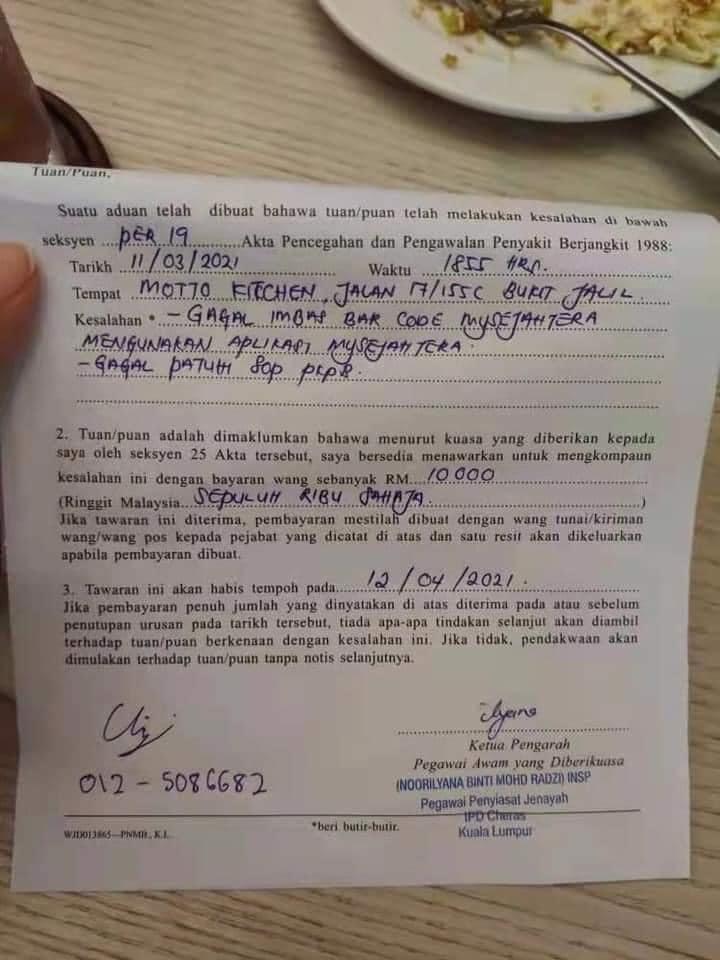 Tuan/Puan,
Suatu aduan telah dibuat bahawa tuan/puan telah melakukan kesalahan di bawah
seksyen ... PER 19 ... Akta Pencegahan dan Pengawalan Penyakit Berjangkit 1988:
Tarikh 11/03/2021 Waktu 1855 HRS.
Tempat MOTTO KITCHEN, JALAN 17/155C BUKIT JALIL.
Kesalahan * - GAGAL IMBAS BAR CODE MYSEJAHTERA
MENGUNAKAN APLIKASI MYSEJAHTERA.
- GAGAL PATUH SOP PKPB.
2. Tuan/puan adalah dimaklumkan bahawa menurut kuasa yang diberikan kepada
saya oleh seksyen 25 Akta tersebut, saya bersedia menawarkan untuk mengkompaun
kesalahan ini dengan bayaran wang sebanyak RM... 10 000
(Ringgit Malaysia... SEPULUH RIBU SAHAJA ...)
Jika tawaran ini diterima, pembayaran mestilah dibuat dengan wang tunai/kiriman
wang/wang pos kepada pejabat yang dicatat di atas dan satu resit akan dikeluarkan
apabila pembayaran dibuat.
3. Tawaran ini akan habis tempoh pada... 12/04/2021.
Jika pembayaran penuh jumlah yang dinyatakan di atas diterima pada atau sebelum
penutupan urusan pada tarikh tersebut, tiada apa-apa tindakan selanjut akan diambil
terhadap tuan/puan berkenaan dengan kesalahan ini. Jika tidak, pendakwaan akan
dimulakan terhadap tuan/puan tanpa notis selanjutnya.
012 - 5086682
ilyana
Ketua Pengarah
Pegawai Awam yang Diberikuasa
(NOORILYANA BINTI MOHD RADZI) INSP
Pegawai Penyiasat Jenayah
IPD Cheras
Kuala Lumpur
*beri butir-butir.
WJD013865—PNMB., K.L.